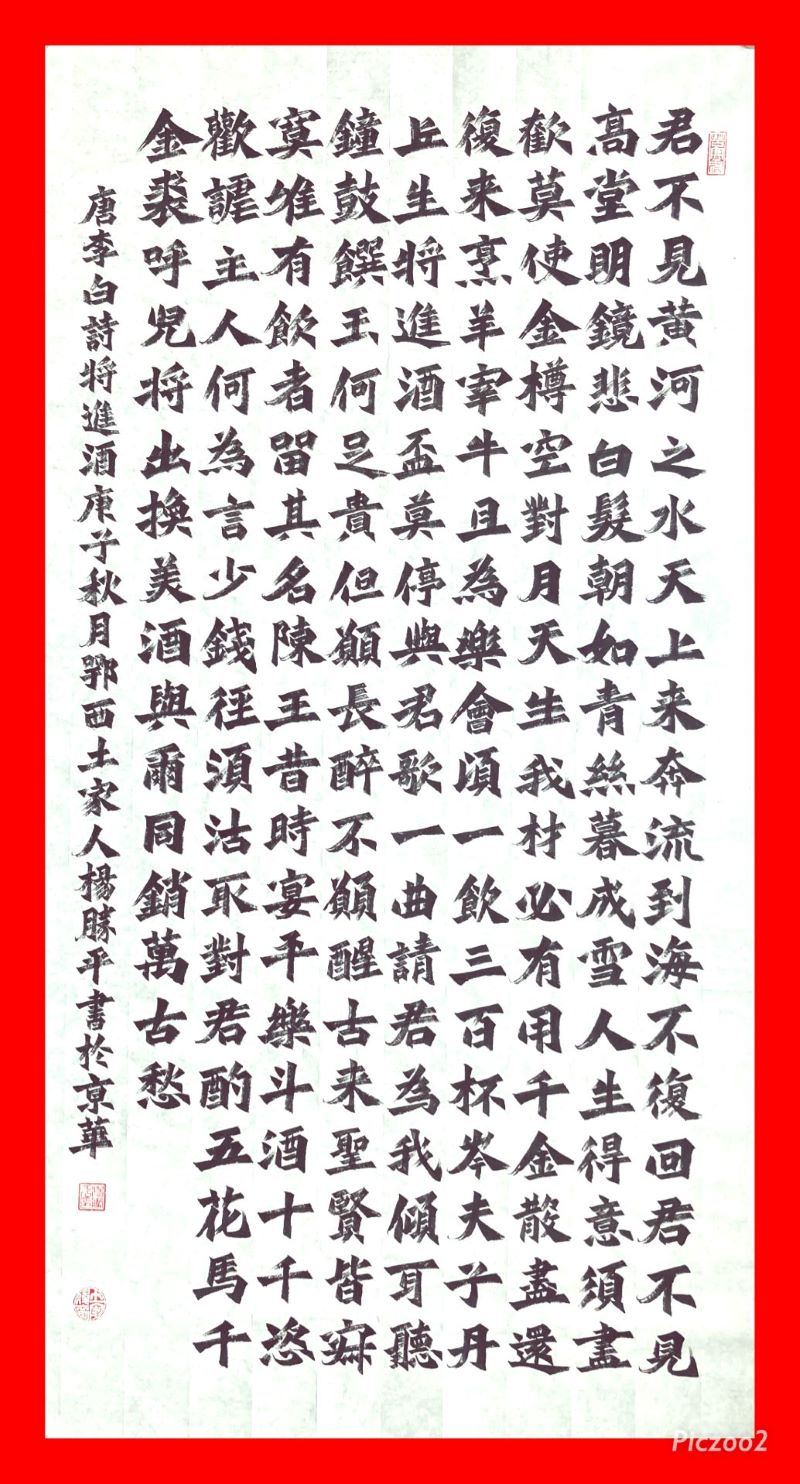 君不見黄河之水天上来奔流到海不復回君不見
髙堂明鏡悲白髮朝如青絲暮成雪人生得意須盡
歓莫使金樽空對月天生我材必有用千金散盡還
復来烹羊宰牛且為樂會須一飲三百杯岑夫子丹
丘生将進酒盃莫停與君歌一曲請君為我傾耳聽
鐘鼓饌玉何足貴但願長醉不願醒古来聖賢皆寂
寞唯有飲者留其名陳王昔時宴平樂斗酒十千恣
歡謔主人何為言少錢徑須沽取對君酌五花馬千
金裘呼兒将出換美酒與爾同銷萬古愁
唐李白詩将進酒庚子秋月鄂西土家人楊勝平書於京華
Piczoo2